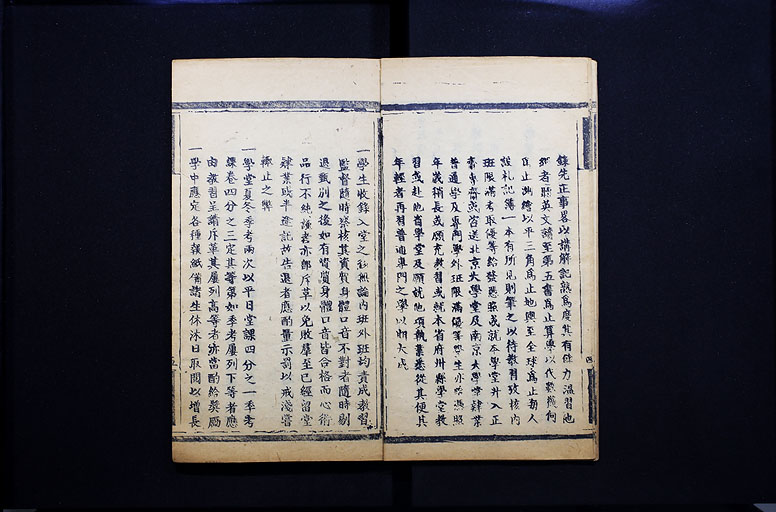 錄先正事畧以講解記誦爲度其有任力溫習他
經者聽英文讀至第五書爲止算學以代數幾何
爲止測繪以平三角爲止地輿至全球爲止勸人
設札記簿一本有所見則筆之以待教習攷核內
班限滿考取優等給發憑照或就本學堂升入正
齋專齋或咨送北京大學堂及南京大學堂肄業
普通學及專門學外班限滿優等畢生亦給憑照
年歲稍長或願充教習或就本省府州縣學堂教
習或赴他省學堂及願就他項執業悉從其便其
年輕者再習普通專門之學以期大成
一學生收錄入堂之後無論內班外班均責成教習
監督隨時察核其資質身體口音不對者隨時剔
退甄別之後如有資質身體口音皆合格而心術
品行不純謹者亦卽斥革以免敗羣至已經留堂
肄業或半途託故告退者應酌量示罰以戒淺嘗
輒止之弊
一學堂夏冬季考兩次以平日堂課四分之一季考
課卷四分之三定其等第如季考屢列下等者應
由教習呈請斥革其屢列高等者亦當酌給獎勵
一學中應定各種報紙備諸生休沐日取閱以增長